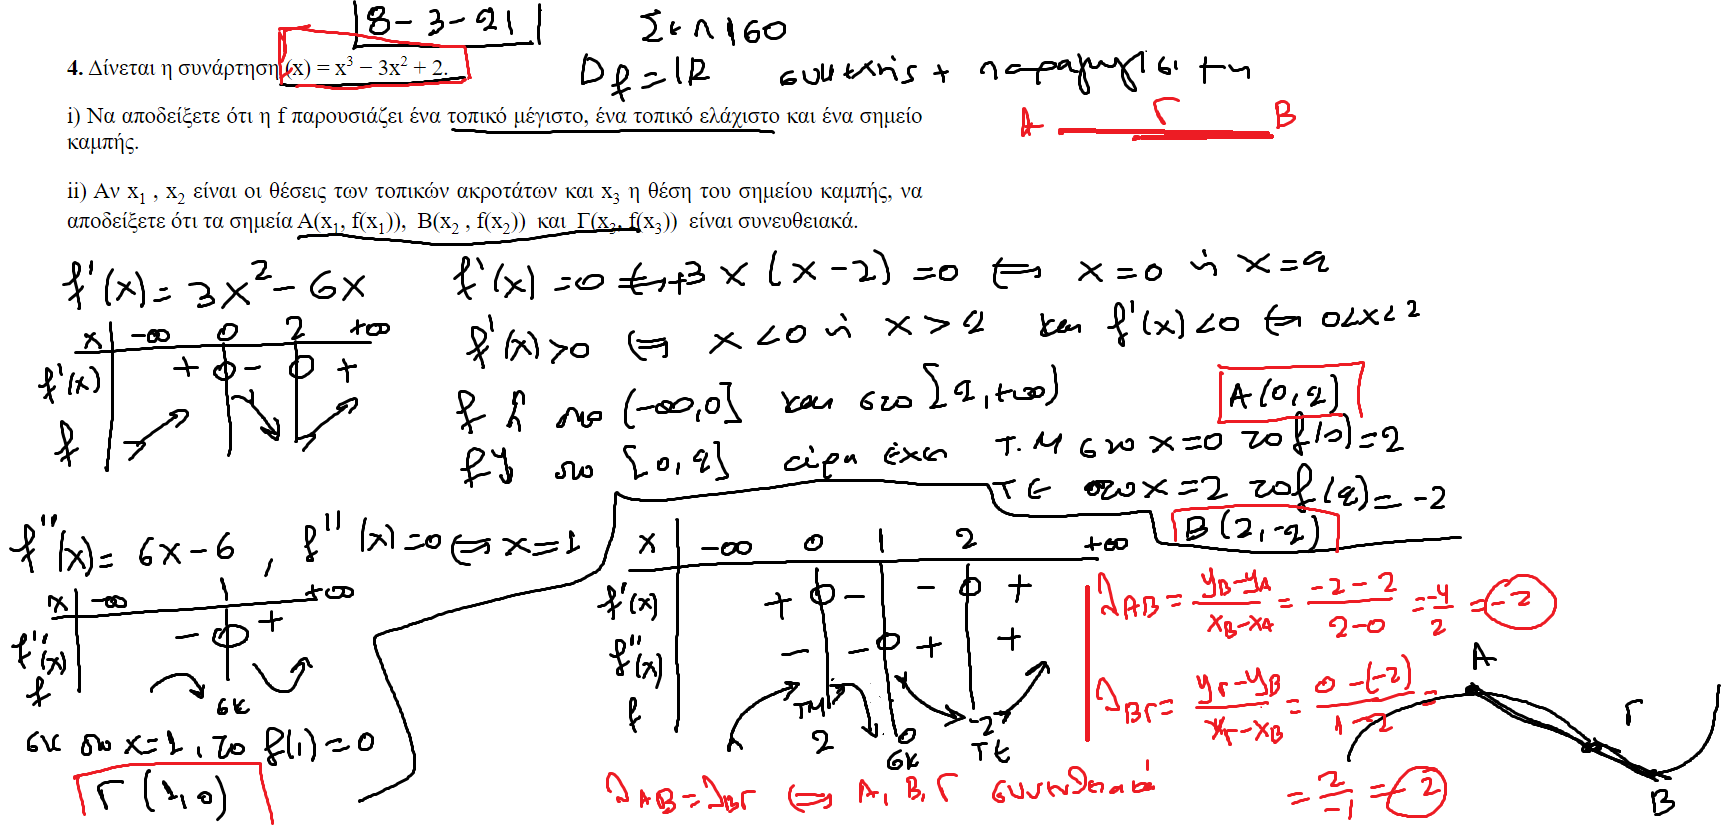 8-3-21
Σελ 160
4. Δίνεται η συνάρτηση (x) = x³ − 3x² + 2.
D_f = ℝ συνεχής + παραγωγίσιμη
i) Να αποδείξετε ότι η f παρουσιάζει ένα τοπικό μέγιστο, ένα τοπικό ελάχιστο και ένα σημείο
καμπής.
Α Γ Β
ii) Αν x₁ , x₂ είναι οι θέσεις των τοπικών ακροτάτων και x₃ η θέση του σημείου καμπής, να
αποδείξετε ότι τα σημεία Α(x₁, f(x₁)), Β(x₂ , f(x₂)) και Γ(x₃, f(x₃)) είναι συνευθειακά.
f'(x) = 3x² − 6x
f'(x) = 0 ⇔ 3x(x−2) = 0 ⇔ x = 0 ή x = 2
f'(x) > 0 ⇔ x < 0 ή x > 2 και f'(x) < 0 ⇔ 0 < x < 2
x −∞ 0 2 +∞
f'(x) + 0 − 0 +
f
f ↗ στο (−∞,0] και στο [2,+∞)
A(0,2)
f ↘ στο [0,2] άρα έχει Τ.Μ στο x=0 το f(0)=2
ΤΕ στο x=2 το f(2)=−2
B(2,−2)
f''(x) = 6x−6 , f''(x)=0 ⇔ x=1
x −∞ 1 +∞
f''(x) − 0 +
f
ΣΚ
ΣΚ στο x=1, το f(1)=0
Γ(1,0)
x −∞ 0 1 2 +∞
f'(x) + 0 − − 0 +
f''(x) − − 0 + +
f ΤΜ 2 0 ΣΚ −2 ΤΕ
λ_ΑΒ = (y_B−y_A)/(x_B−x_A) = (−2−2)/(2−0) = −4/2 = −2
λ_ΒΓ = (y_Γ−y_B)/(x_Γ−x_B) = (0−(−2))/(1−2) =
= 2/−1 = −2
λ_ΑΒ = λ_ΒΓ ⇔ Α, Β, Γ συνευθειακά
Α
Γ
Β